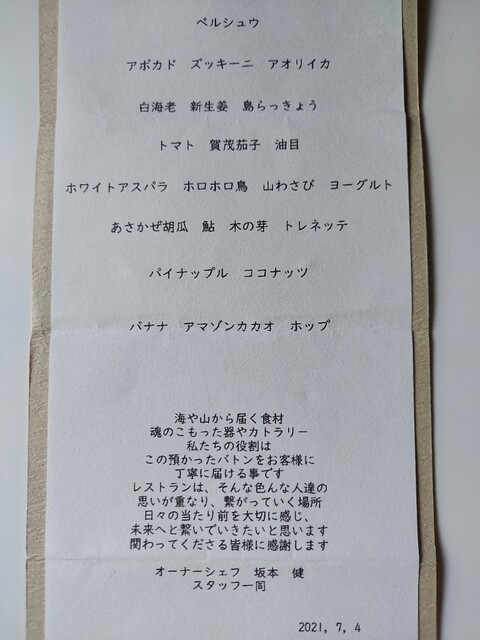 ペルシュウ
アボカド　ズッキーニ　アオリイカ
白海老　新生姜　島らっきょう
トマト　賀茂茄子　油目
ホワイトアスパラ　ホロホロ鳥　山わさび　ヨーグルト
あさかぜ胡瓜　鮎　木の芽　トレネッテ
パイナップル　ココナッツ
バナナ　アマゾンカカオ　ホップ
海や山から届く食材
魂のこもった器やカトラリー
私たちの役割は
この預かったバトンをお客様に
丁寧に届ける事です
レストランは、そんな色んな人達の
思いが重なり、繋がっていく場所
日々の当たり前を大切に感じ、
未来へと繋いでいきたいと思います
関わってくださる皆様に感謝します
オーナーシェフ　坂本　健
スタッフ一同
2021, 7, 4